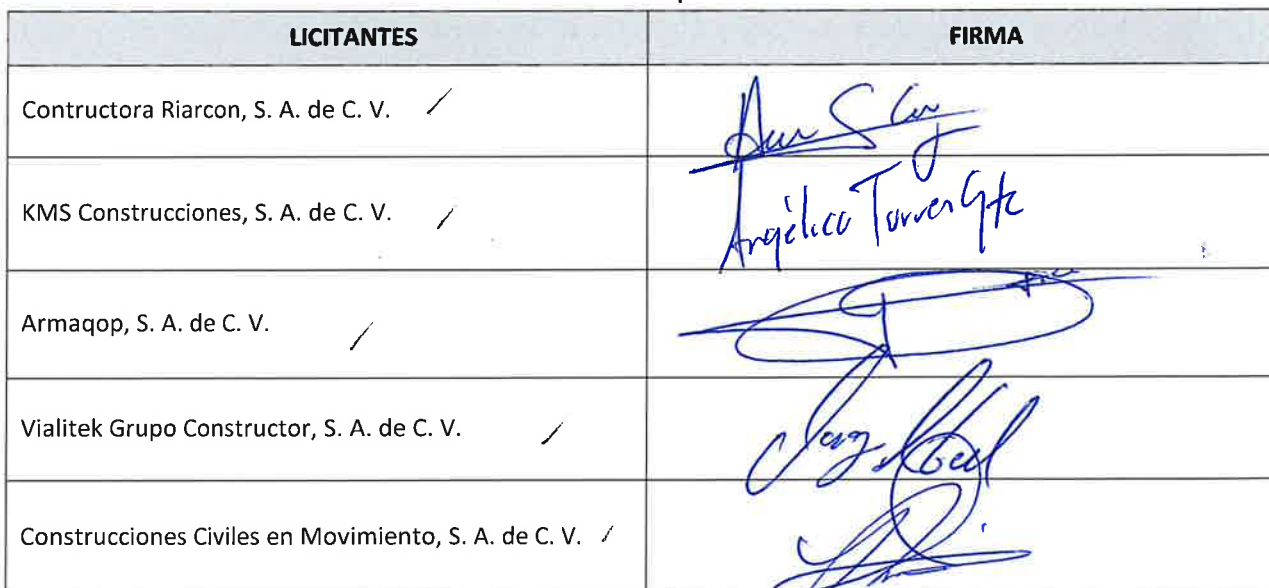 LICITANTES FIRMA
Contructora Riarcon, S. A. de C. V.
KMS Construcciones, S. A. de C. V. Angélica Torres Gtz
Armaqop, S. A. de C. V.
Vialitek Grupo Constructor, S. A. de C. V.
Construcciones Civiles en Movimiento, S. A. de C. V.